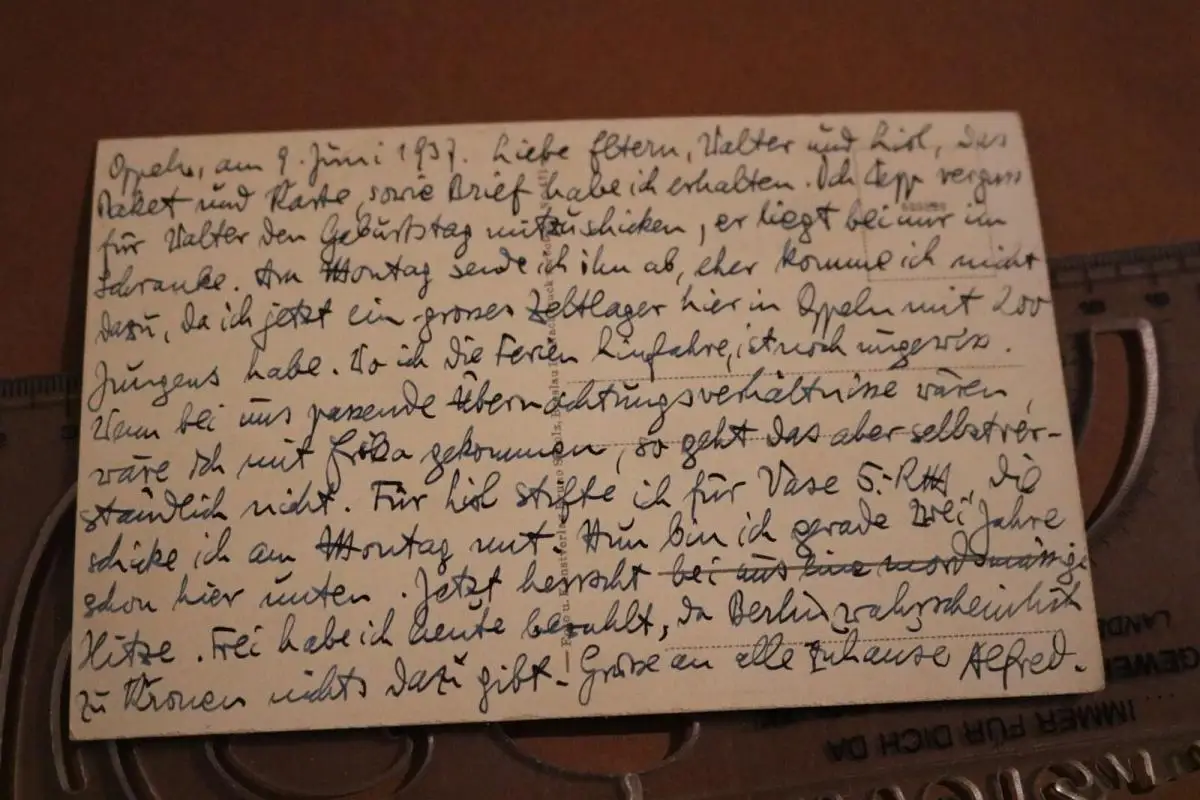 Oppeln, am 9. Juni 1937. Liebe Eltern, Walter und Lisl, das
Paket und Karte, sowie Brief habe ich erhalten. Ich Depp vergass
für Walter den Geburtstag mitzuschicken, er liegt bei mir im
Schranke. Am Montag sende ich ihn ab, eher komme ich nicht
dazu, da ich jetzt ein grosses Zeltlager hier in Oppeln mit 200
Jungens habe. Wo ich die Ferien hinfahre, ist noch ungewiss.
Wenn bei uns passende Übernachtungsverhältnisse wären,
wäre ich mit Erika gekommen, so geht das aber selbstver-
ständlich nicht. Für Lisl stifte ich für Vase 5.-RM, die
schicke ich am Montag mit. Nun bin ich gerade zwei Jahre
schon hier unten. Jetzt herrscht bei uns eine mordsmässige
Hitze. Frei habe ich heute bezahlt, da Berlin wahrscheinlich
zu nichts dazu gibt - Grüsse an alle zuhause Alfred.
Foto u. Kunstverlag Bruno Scholz, Breslau
IMMER FÜR DICH DA